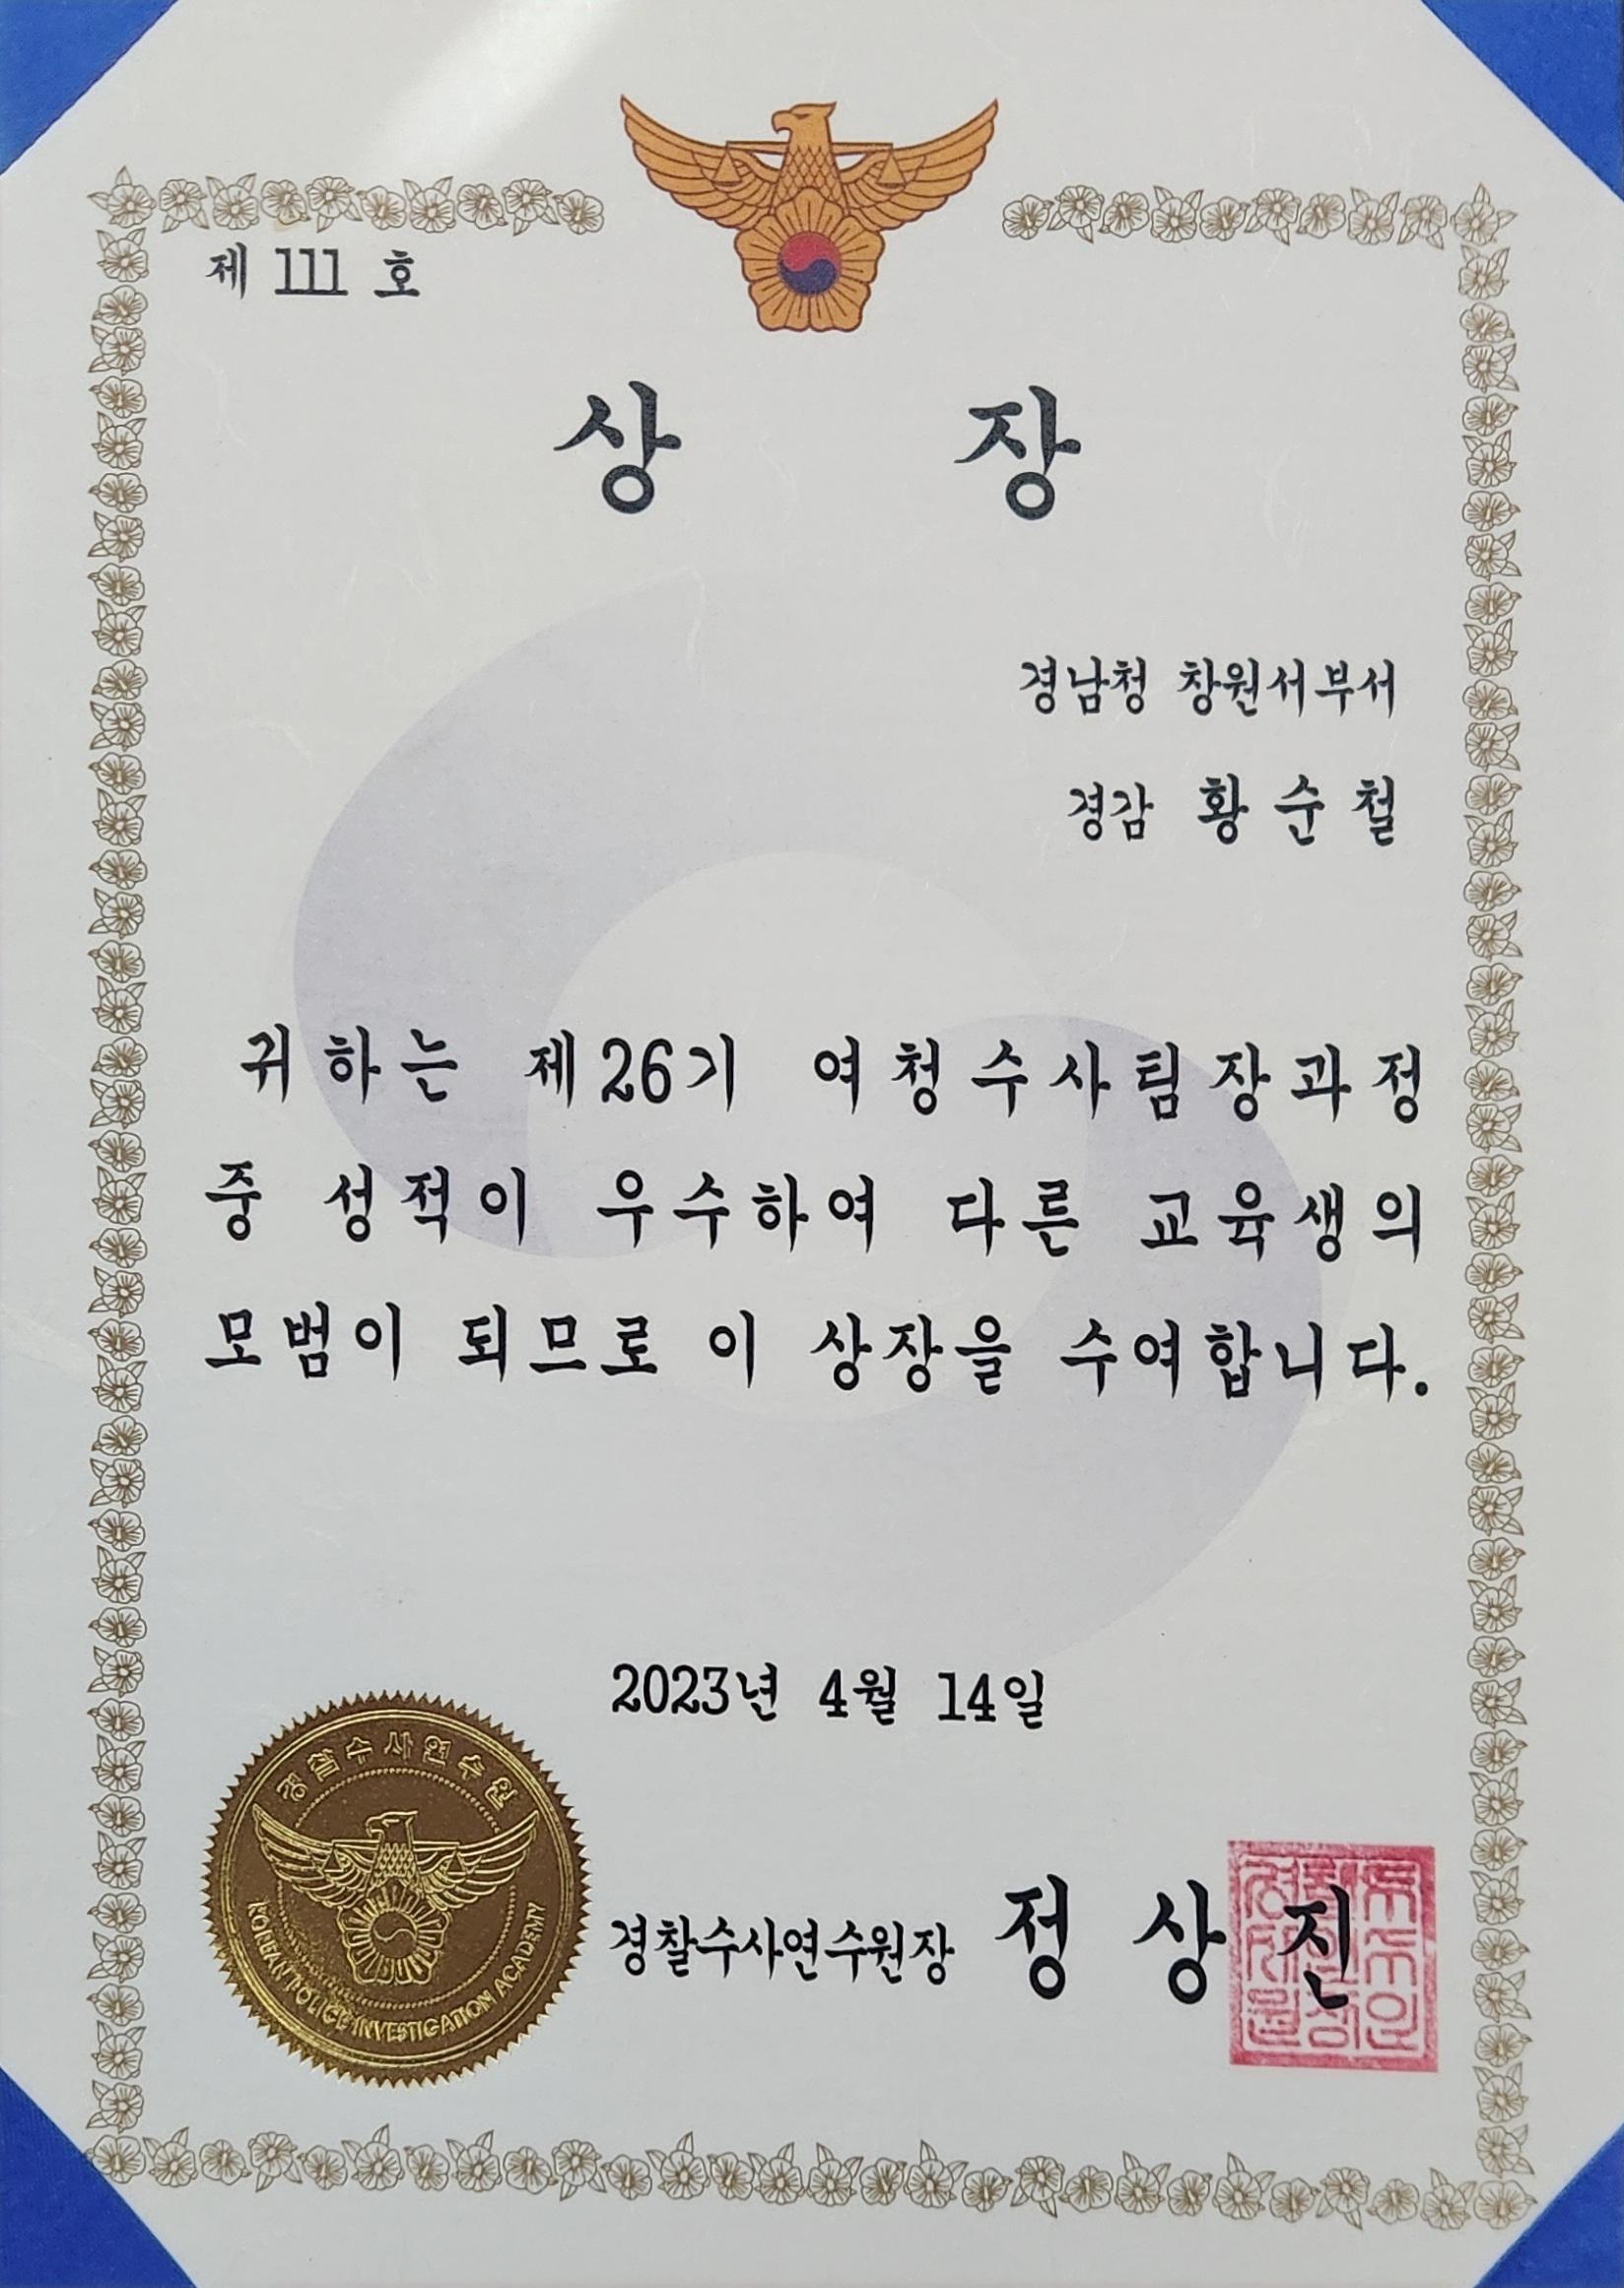 제 111 호
상 장
경남청 창원서부서
경감 황순철
귀하는 제26기 여청수사팀장과정
중 성적이 우수하여 다른 교육생의
모범이 되므로 이 상장을 수여합니다.
2023년 4월 14일
경찰수사연수원
KOREAN POLICE INVESTIGATION ACADEMY
경찰수사연수원장 정상진